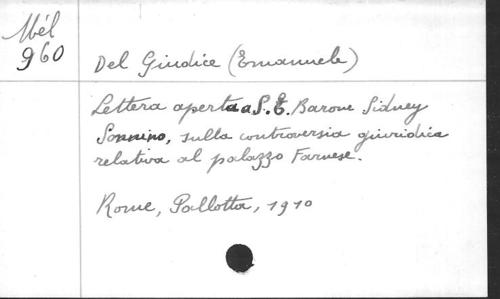 Mél
960
Del Giudice (Emanuele)
Lettera aperta a S.E. Barone Sidney
Sonnino, sulla controversia giuridica
relativa al palazzo Farnese.
Rome, Pallotta, 1910